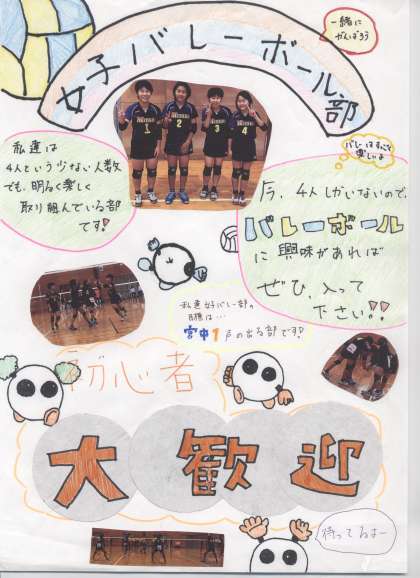 一緒に
がんばろう
女子バレーボール部
バレーはすごく
楽しいよ
私達は
4人という少ない人数
でも、明るく楽しく
取り組んでいる部
です!
1 2 3 4
今、4人しかいないので、
バレーボール
に興味があれば
ぜひ、入って
下さい!!
私達女子バレー部の
目標は…
宮中1声の出る部です!
初心者
大歓迎
待ってるよー